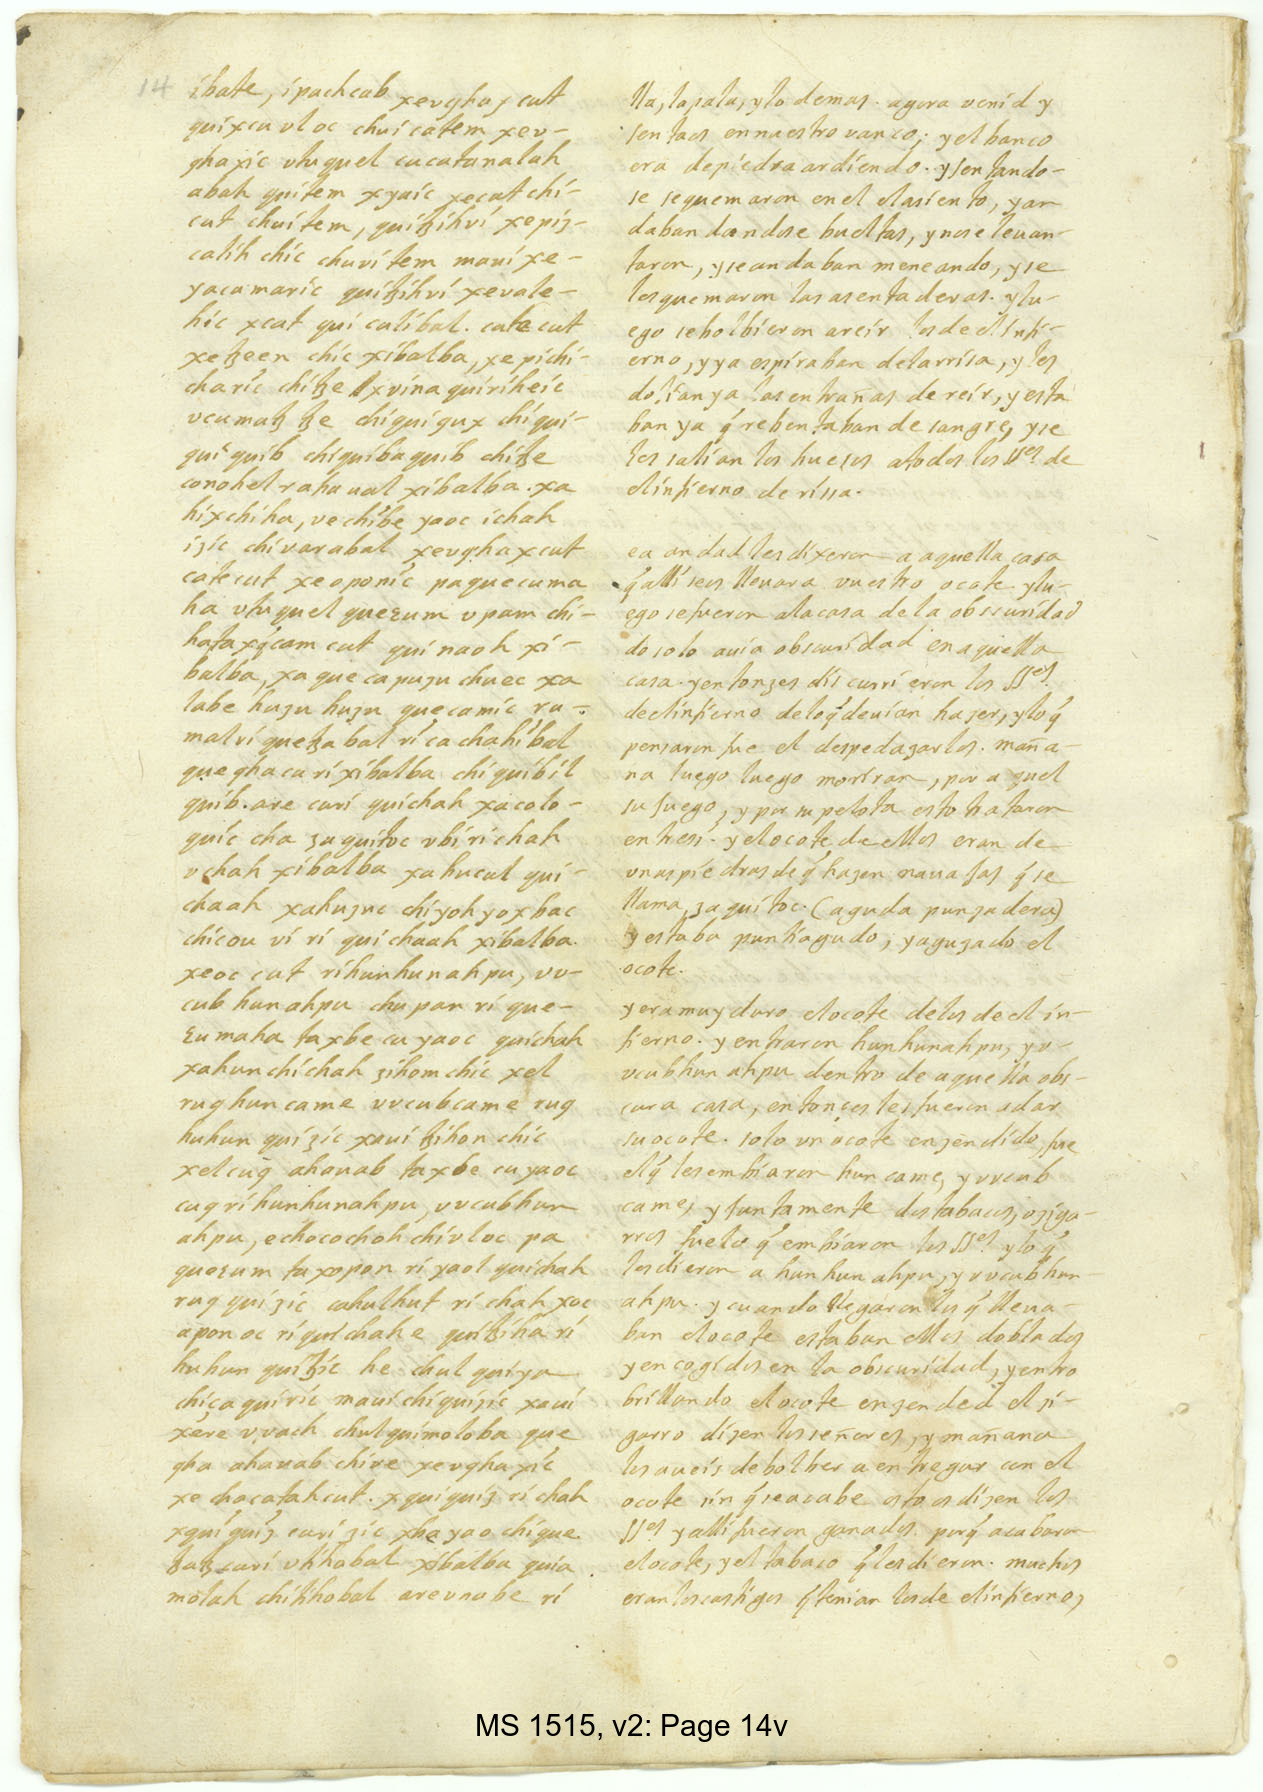 14
ibate, ipachcab xevghaxcut
quixcu vloc chui catem xev-
ghaxic vtuquel cucatanalah
abah quitem xyaic xecutchi-
cut chuitem, quitzihvi xepiz-
calih chic chuvi tem maui xe-
yacamaric quitzihvi xevale-
hic xcat qui culibal. catecut
xetzeen chic xibalba, xepichi-
charic chitze xvina quiriheic
vcumatz tze chiquigux chiqui-
quiquib chiquibaquib chitze
conohel rahaual xibalba. xa
hixchiha, ve chibe yaoc ichah
izic chivarabal xevghaxcut
catecut xeoponic paquecuma
ha vtuquel quecum vpam chi-
hataxq̃cam cut quinaoh xi-
balba, xa que capuzu chuec xa
labe huzu huzu quecamic ru-
malri quetzabal ri cachahibal
quegha cari xibalba chiquibil
quib. are curi quichah xacolo-
quic cha zaquitoc vbi richah
vchah xibalba xahucul qui-
chaah xahuzuc chiyohyoxbac
chicou vi ri quichaah xibalba.
xeoc cut rihunhunahpu, vv-
cub hunahpu chupan ri que-
cumaha taxbe cu yaoc quichah
xahunchichah zihomchic xel
rug huncame vvcubcame rug
huhun quizic xaui tzihon chic
xelcuq̃ ahauab taxbe cuyaoc
cuq rihunhunahpu, vvcubhun
ahpu, echocochoh chivloc pa
quecum taxopon ri yaol quichah
rug quizic cahulhut ri chah xoc
apon oc ri quichah e quitziha ri
huhun quitzic he chul quiya
chicaquiric maui chiquizic xaui
xere vvach chulquimoloba que
gha ahauab chire xevghaxic
xe chacatahcut. xquiquiz richah
xquiquiz curi zic xhayao chique
tzatzcuri vtihobal xibalba quia
molah chitihobal arevnabe ri
lla, la sala, y lo demas. agora venid y
sentaos en nuestro vanco; y el banco
era de piedra ardiendo. y sentando-
se se quemaron en el el asiento, y an
daban dandose bueltas, y no se leuan-
taron, y se andaban meneando, y se
les quemaron las asentaderas. y lu-
ego se bolbieron a reir los de el infi-
erno, y ya espiraban de la rrisa, y les
dolian ya las entrañas de reir, y esta
ban ya q̃ rebentaban de sangre, y se
les salian los huesos a todos los SSes de
el infierno de rissa.
ea andad les dixeron a aquella casa
q̃ alli se os lleuara vuestro ocote y lu-
ego se fueron a la casa de la obscuridad
do solo auia obscuridad en aquella
casa. y entonzes discurrieron los SSes
de el infierno de lo q̃ deuian hazer, y lo q̃
pensaron fue el despedazarlos. maña-
na luego luego moriran, por aquel
su juego, y por su pelota esto trataron
entresi. y el ocote de ellos eran de
vnas piedras de q̃ hazen nauajas q̃ se
llama, zaquitoc. (aguda punzadera)
y estaba puntiagudo, y aguzado el
ocote.
y era muy duro el ocote de los de el in-
fierno. y entraron hunhunahpu, y v-
vcubhun ahpu dentro de aquella obs-
cura casa, entonçes les fueron a dar
su ocote. solo vn ocote enzendido, fue
el q̃ les embiaron hun came, y vvcub
came, y juntamente dos tabacos, o ziga-
rros fue lo q̃ embiaron los SSes y lo q̃
les dieron a hun hun ahpu, y vvcubhun
ahpu. y cuando llegaron los q̃ lleua-
ban el ocote estaban ellos doblados
y encogidos en la obscuridad, y entro
brillando el ocote enzended el zi-
garro dizen los señores, y mañana
los aueis de bolber a entregar con el
ocote sin q̃ se acabe esto os dizen los
SSes y alli fueron ganados. porq̃ acabaron
el ocote, y el tabaco q̃ les dieron. muchos
eran los castigos q̃ tenian los de el infierno,
MS 1515, v2: Page 14v